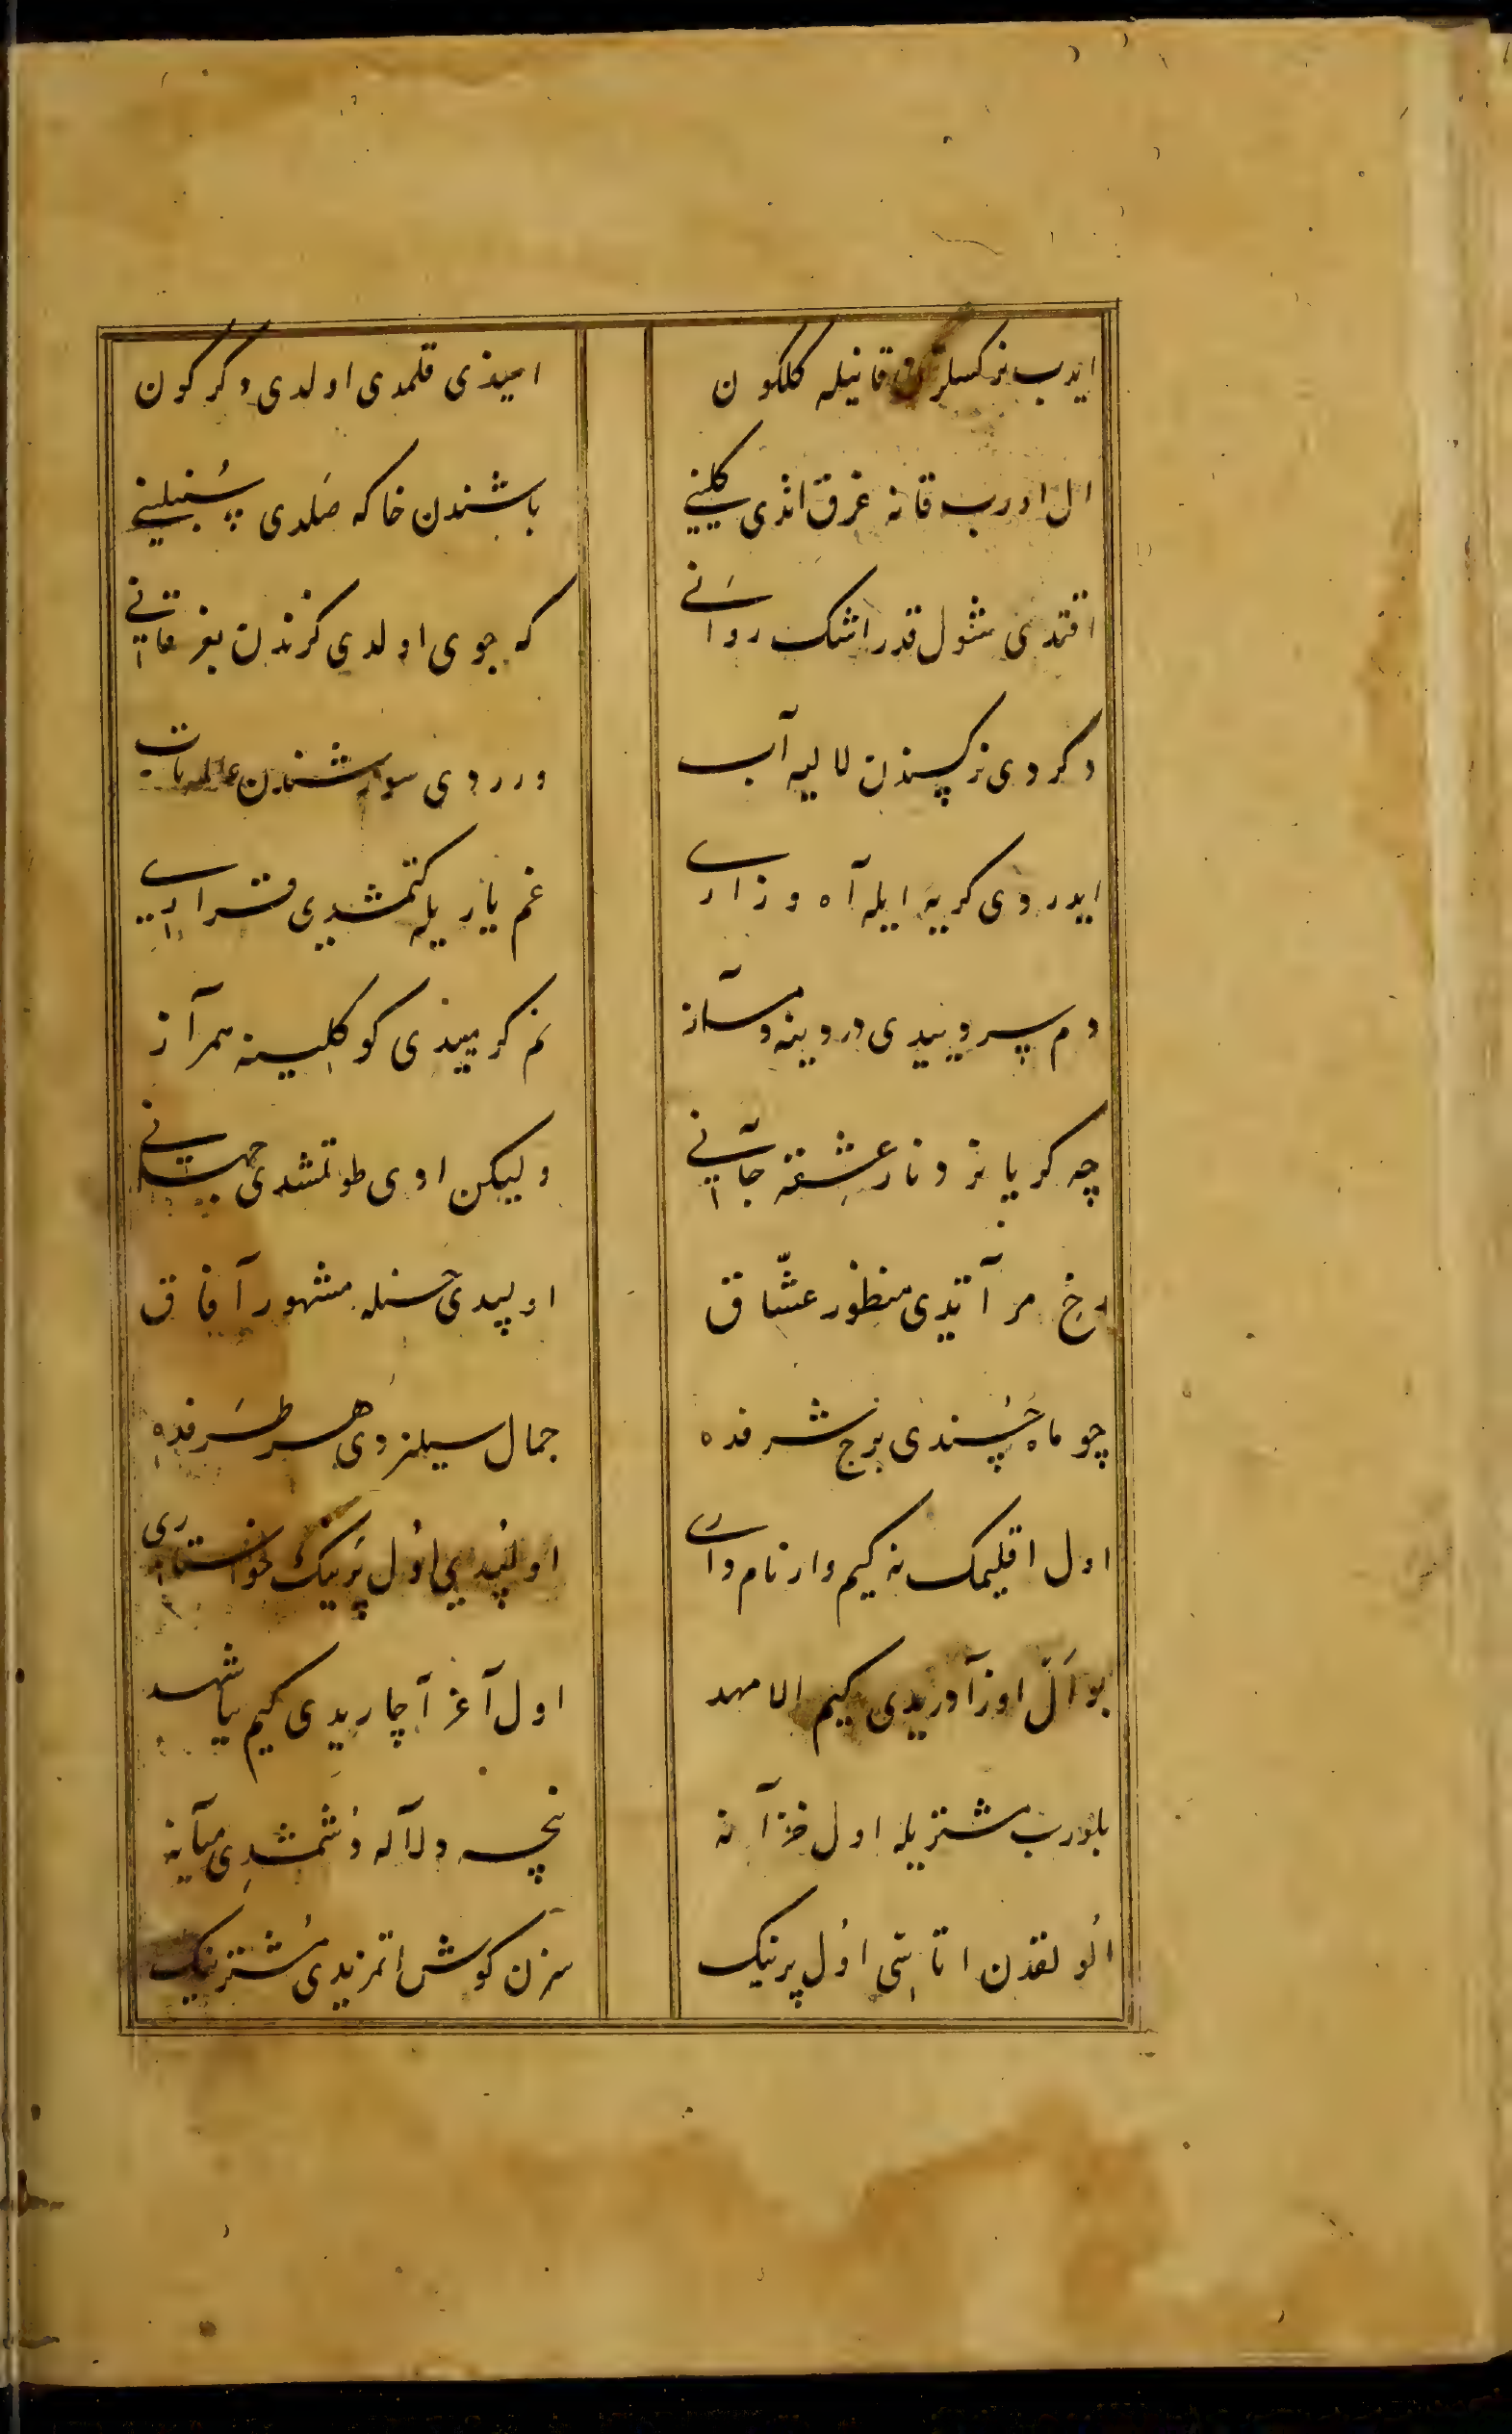 ایدب نرکسلرن قانیله کلکون
امیذی قلمدی اولدی دکرکون
ال اورب قانه غرق اتدی کلینی
باشندن خاکه صَلدی سُنبلینی
اقتدی شول قدر اشک روانی
که جوی اولدی کزندن بغرقانی
دکردی نرکسندن لالیه آب
ورردی سوزشندن
ایدردی کریه ایله آه و زاری
غم یاریله کتمشدی قراری
دم سردیدی دردینه دمساز
نم کومیدی کوکلیسنه همرآز
چه کر یانردی نار عشقه جانی
ولیکن اودی طوتمشدی جهانی
رخ مرآتدی منظور عشّاق
اولیدی حسنله مشهور آفاق
چو ماه حُسندی برج شرفده
جمال سیلنردی هر طرفده
اول اقلیمک نه کیم وار نامداری
اولیدی اول پرینک خواستاری
بو اَل اوزآدریدی کیم الا مهد
اول آغز آچاریدی کیم یا شهد
بلورب مشتریله اول خزآنه
نیچه دلاله دُشمشدی میآنه
الولقدن اتاسی اول پرینک
سزن کوش اتمزیدی مُشترینک